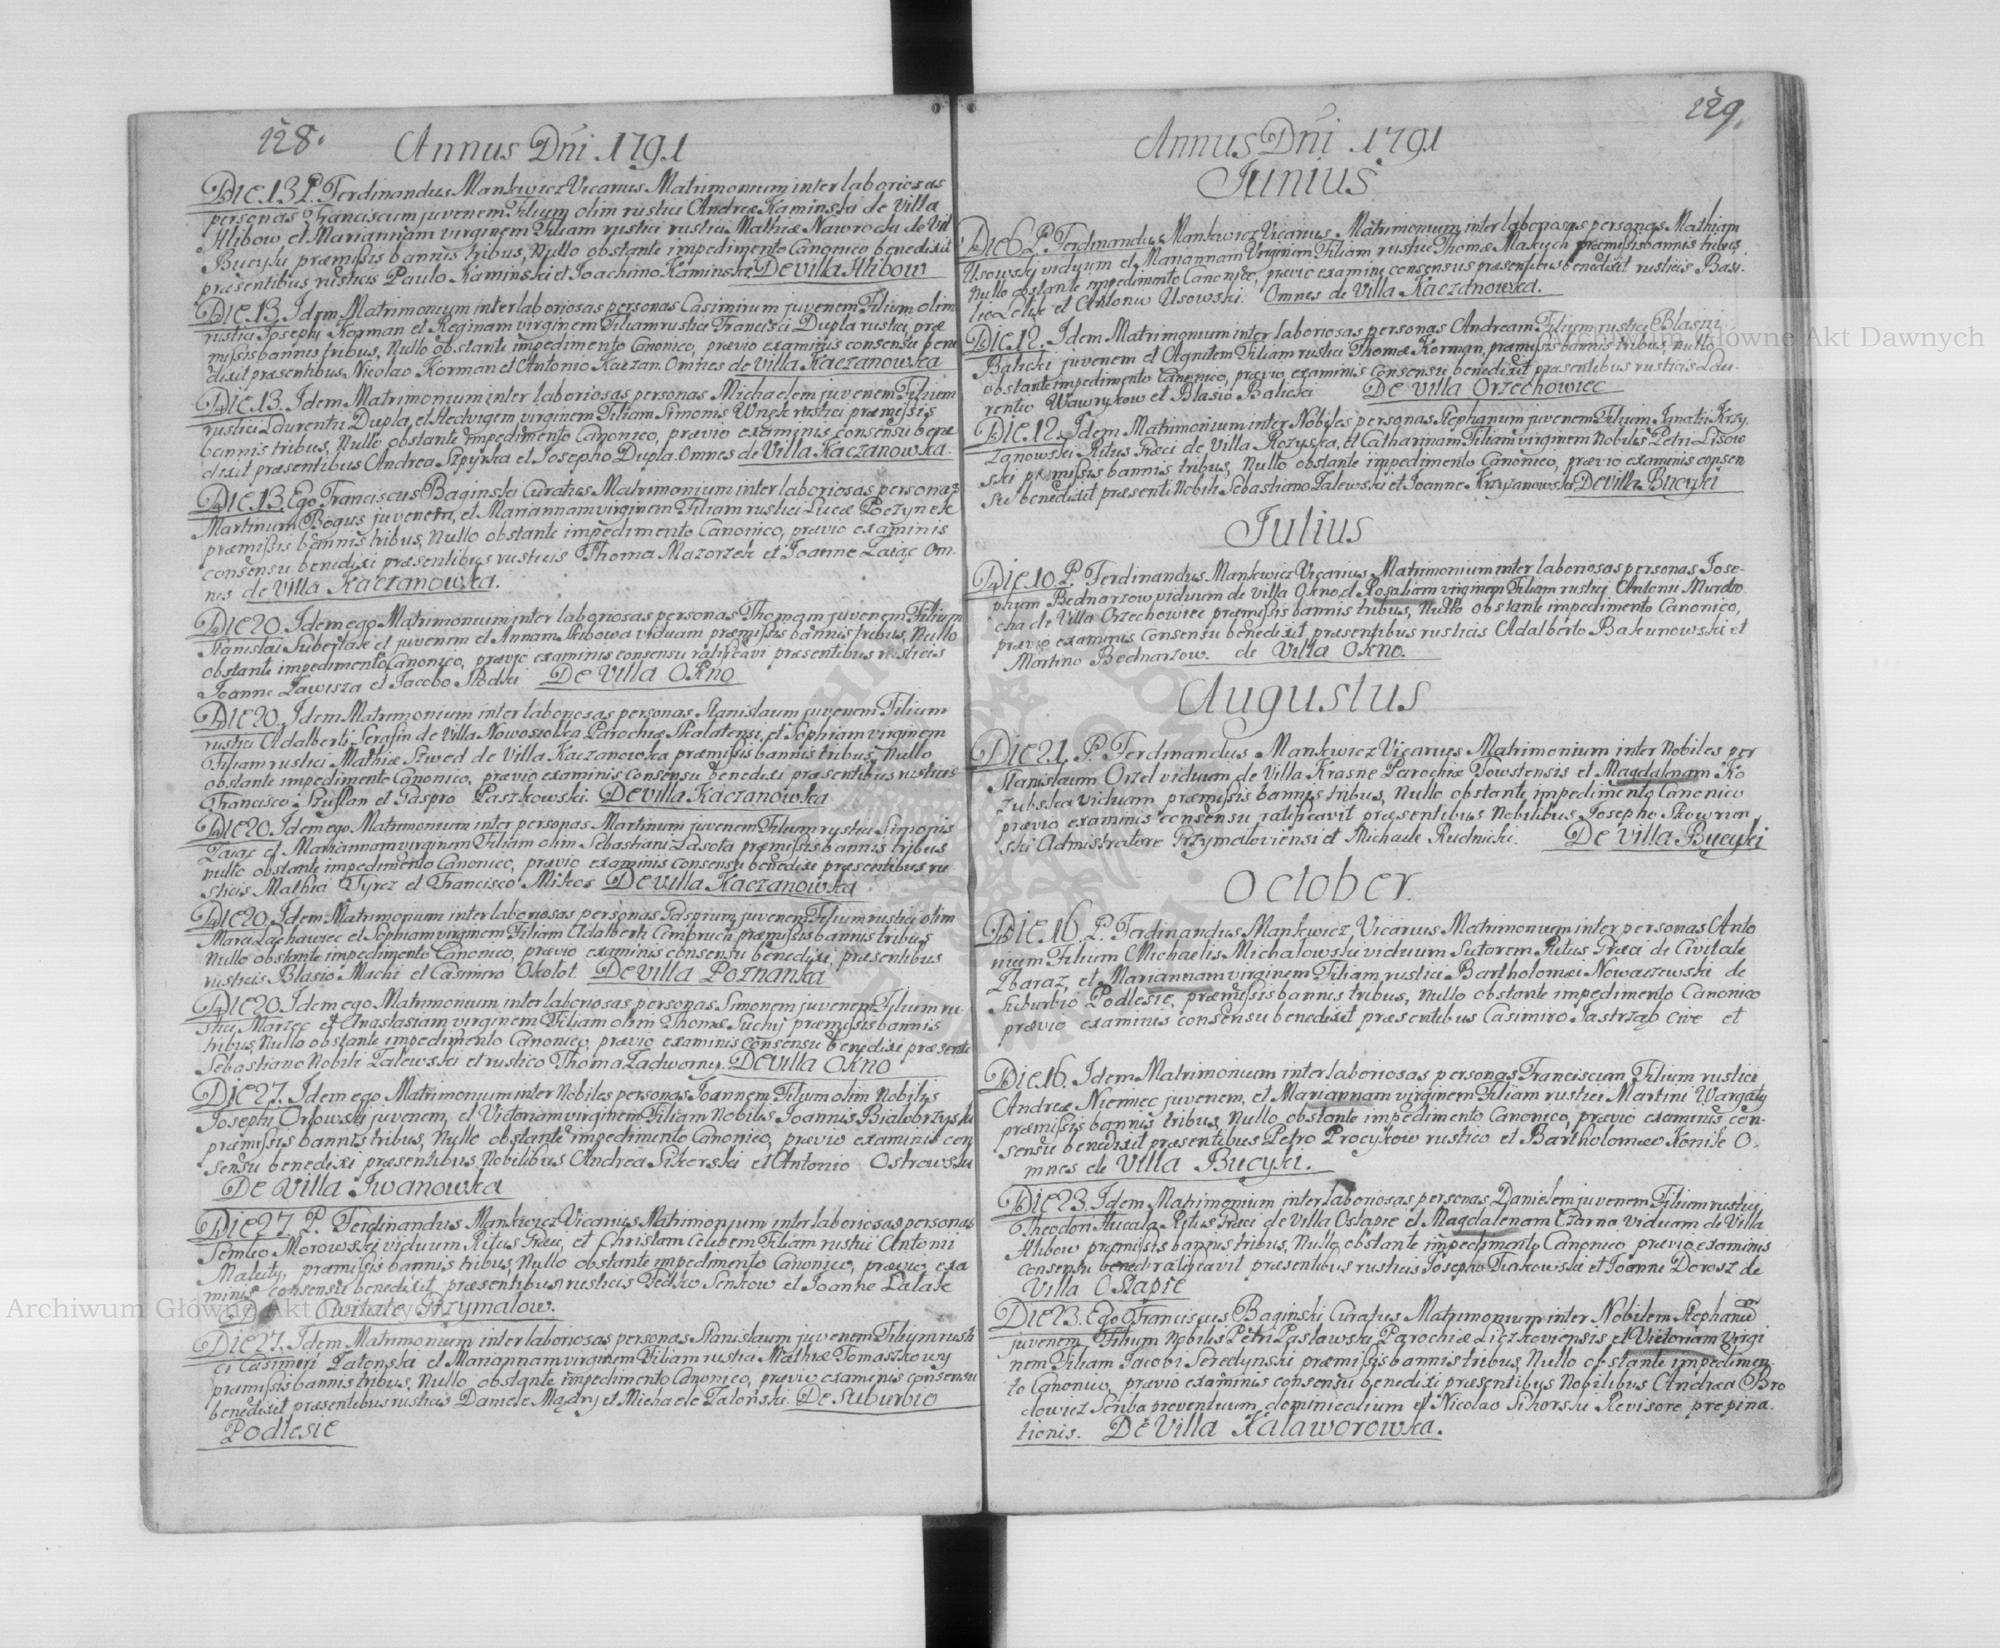 128.
Annus Dni 1791
Die 13 P. Ferdinandus Mankwicz Vicarius Matrimonium inter laboriosas
personas Franciscum juvenem Filium olim rustici Andreæ Kaminski de Villa
Hlibow et Mariannam virginem Filiam rustici rustici Mathiæ Nawrocki de Vil
Bucyki præmissis bannis tribus, Nullo obstante impedimento Canonico benedixit
præsentibus rusticis Paulo Kaminski et Joachimo Kaminski De villa Hlibow
Die 13. Idem Matrimonium inter laboriosas personas Casimirum juvenem Filium olim
rustici Josephi Korman et Reginam virginem Filiam rustici Francisci Dupla rustici, præ
missis bannis tribus, Nullo obstante impedimento Canonico, prævio examinis consensu bene
dixit præsentibus Nicolao Korman et Antonio Kaczan. Omnes de Villa Kaczanowka
Die 13. Idem Matrimonium inter laboriosas personas Michaelem juvenem Filium
rustici Laurentii Dupla, et Hedvigem virginem Filiam Simonis Wnęk rustici præmissis
bannis tribus, Nullo obstante impedimento Canonico, prævio examinis consensu bene
dixit præsentibus Andrea Szpyrka et Josepho Dupla. Omnes de Villa Kaczanowka.
Die 13. Ego Franciscus Baginski Curatus Matrimonium inter laboriosas personas
Martinum Bogus juvenem, et Mariannam virginem Filiam rustici Lucæ Poczynek
præmissis bannis tribus, Nullo obstante impedimento Canonico, prævio examinis
consensu benedixi præsentibus rusticis Thoma Mazorzek et Joanne Zaiąc Om-
nes de Villa Kaczanowka.
Die 20. Idem ego Matrimonium inter laboriosas personas Thomam juvenem Filium
Stanislai et juvenem et Annam Skibowa viduam præmissis bannis tribus, Nullo
obstante impedimento Canonico, prævio examinis consensu ratificavi præsentibus rusticis
Joanne Zawisza et Jacobo De Villa Okno
Die 20. Idem Matrimonium inter laboriosas personas Stanislaum juvenem Filium
rustici Adalberti Serafin de Villa Nowosiołka Parochiæ Skalatensi, et Sophiam virginem
Filiam rustici Mathiæ Szwed de Villa Kaczanowka præmissis bannis tribus, Nullo
obstante impedimento Canonico, prævio examinis consensu benedixi præsentibus rusticis
Francisco et Gaspro Paszkowski. De villa Kaczanowka
Die 20. Idem ego Matrimonium inter personas Martinum juvenem Filium rustici Simonis
Zaiąc et Mariannam virginem Filiam olim Sebastiani Lasota præmissis bannis tribus
nullo obstante impedimento Canonico, prævio examinis consensu benedixi præsentibus ru
sticis Mathia Tyrcz et Francisco Mikos De villa Kaczanowka
Die 20. Idem Matrimonium inter laboriosas personas Gasprum juvenem Filium rustici olim
Marci Lachawiec et Sophiam virginem Filiam Adalberti præmissis bannis tribus
Nullo obstante impedimento Canonico, prævio examinis consensu benedixi, præsentibus
rusticis Blasio Machi et Casimiro Okolot. De villa Poznanka
Die 20. Idem ego Matrimonium inter laboriosas personas Simonem juvenem Filium ru
stici Marzec et Anastasiam virginem Filiam olim Thomæ Suchÿ præmissis bannis
tribus, Nullo obstante impedimento Canonico, prævio examinis consensu benedixi præsente
Sebastiano Nobili Zalewski et rustico Thoma Zadworny. De villa Okno
Die 27. Idem ego Matrimonium inter Nobiles personas Joannem Filium olim Nobilis
Josephi Orłowski juvenem, et Victoriam virginem Filiam Nobilis Joannis Białobrzyski
præmissis bannis tribus, Nullo obstante impedimento Canonico, prævio examinis con
sensu benedixi præsentibus Nobilibus Andrea Sikorski et Antonio Ostrowski
De Villa Iwanowka
Die 27. P. Ferdinandus Mankwicz Vicarius Matrimonium inter laboriosas personas
Semko Morowski viduum Ritus Græci, et Christam Celibem Filiam rustici Antonii
Maleuty, præmissis bannis tribus, Nullo obstante impedimento Canonico, prævio exa
minis consensu benedixit præsentibus rusticis Fedko Senkow et Joanne Łatak
De Civitate Grzymałow.
Die 27. Idem Matrimonium inter laboriosas personas Stanislaum juvenem Filium rusti
ci Casimiri Zatonski et Mariannam virginem Filiam rustici Mathiæ Tomaszkowy
præmissis bannis tribus, Nullo obstante impedimento Canonico, prævio examinis consensu
benedixit præsentibus rusticis Daniele Mądry et Michaele Zatonski. De Suburbio
Podlesie
129.
Annus Dni 1791
Junius
Die 6 P. Ferdinandus Mankwicz Vicarius Matrimonium inter laboriosas personas Mathiam
Usowski viduum et Mariannam Virginem Filiam rustici Thomæ Maksych præmissis bannis tribus,
Nullo obstante impedimento Canonico, prævio examine consensus præsentibus benedixit rusticis Basi-
lio Lelik et Antonio Usowski. Omnes de Villa Kaczanowka.
Die 12. Idem Matrimonium inter laboriosas personas Andream Filium rustici Blasii
Balicki juvenem et Agnetem Filiam rustici Thomæ Korman, præmissis bannis tribus, nullo
obstante impedimento Canonico, prævio examinis consensu benedixit præsentibus rusticis Lau-
rentio Wawrykow et Blasio Balicki De Villa Orzechowiec
Die 12. Idem Matrimonium inter Nobiles personas Stephanum juvenem Filium Ignatii Krzy-
zanowski Ritus Græci de Villa Rozyska, et Catharinam Filiam virginem Nobilis Petri Lisow
ski præmissis bannis tribus, Nullo obstante impedimento Canonico, prævio examinis consen
su benedixit præsenti Nobili Sebastiano Zalewski et Joanne Krzyzanowski De villa Bucyki
Julius
Die 10. P. Ferdinandus Mankwicz Vicarius Matrimonium inter laboriosas personas Jose-
phum Bednarzow viduum de Villa Okno, et Rosaliam virginem Filiam rustici Antonii Murdro
cha de Villa Orzechowiec præmissis bannis tribus, Nullo obstante impedimento Canonico,
prævio examinis Consensu benedixit præsentibus rusticis Adalberto Bakunowski et
Martino Bednarzow. de Villa Okno.
Augustus
Die 21. P. Ferdinandus Mankwicz Vicarius Matrimonium inter Nobiles per
Stanislaum Orzel viduum de Villa Krasne Parochiæ Towstensis et Magdalenam Ko
zubska viduam præmissis bannis tribus, Nullo obstante impedimento Canonico
prævio examinis consensu ratificavit præsentibus Nobilibus Josepho Skowron
ski Admistratore Grzymaloviensi et Michaele Rudnicki. De Villa Bucyki
October.
Die 16. P. Ferdinandus Mankwicz Vicarius Matrimonium inter personas Anto
nium Filium Michaelis Michalowski viduum Sutorem Ritus Græci de Civitate
Zbaraz, et Mariannam virginem Filiam rustici Bartholomæi Nowaczewski de
Suburbio Podlesie, præmissis bannis tribus, Nullo obstante impedimento Canonico
prævio examinis consensu benedixit præsentibus Casimiro Jastrząb Cive et
Die 16. Idem Matrimonium inter laboriosas personas Franciscum Filium rustici
Andreæ Niemiec juvenem, et Mariannam virginem Filiam rustici Martini Wargaty
præmissis bannis tribus, Nullo obstante impedimento Canonico, prævio examinis con-
sensu benedixit præsentibus Petro Procykow rustico et Bartholomæo Konik O-
mnes de Villa Bucyki.
Die 23. Idem Matrimonium inter laboriosas personas Danielem juvenem Filium rustici
Theodori Hucala Ritus Græci de Villa Ostapie et Magdalenam Czarna viduam de Villa
Hlibow præmissis bannis tribus, Nullo obstante impedimento Canonico prævio examinis
consensu bened ratificavit præsentibus rusticis Josepho Finkowski et Joanne Dorosz de
Villa Ostapie
Die 23. Ego Franciscus Baginski Curatus Matrimonium inter Nobilem Stephanum
juvenem Filium Nobilis Petri Pasławski, Parochiæ Liczkoviensis et Victoriam Virgi
nem Filiam Jacobi Seredynski præmissis bannis tribus, Nullo obstante impedimen-
to Canonico, prævio examinis consensu benedixi præsentibus Nobilibus Andrea Bro
dowicz Scriba proventuum dominicalium et Nicolao Sikorski Revisore propina-
tionis. De Villa Kalaworowka.
Archiwum Główne Akt Dawnych
Archiwum Główne Akt Dawnych